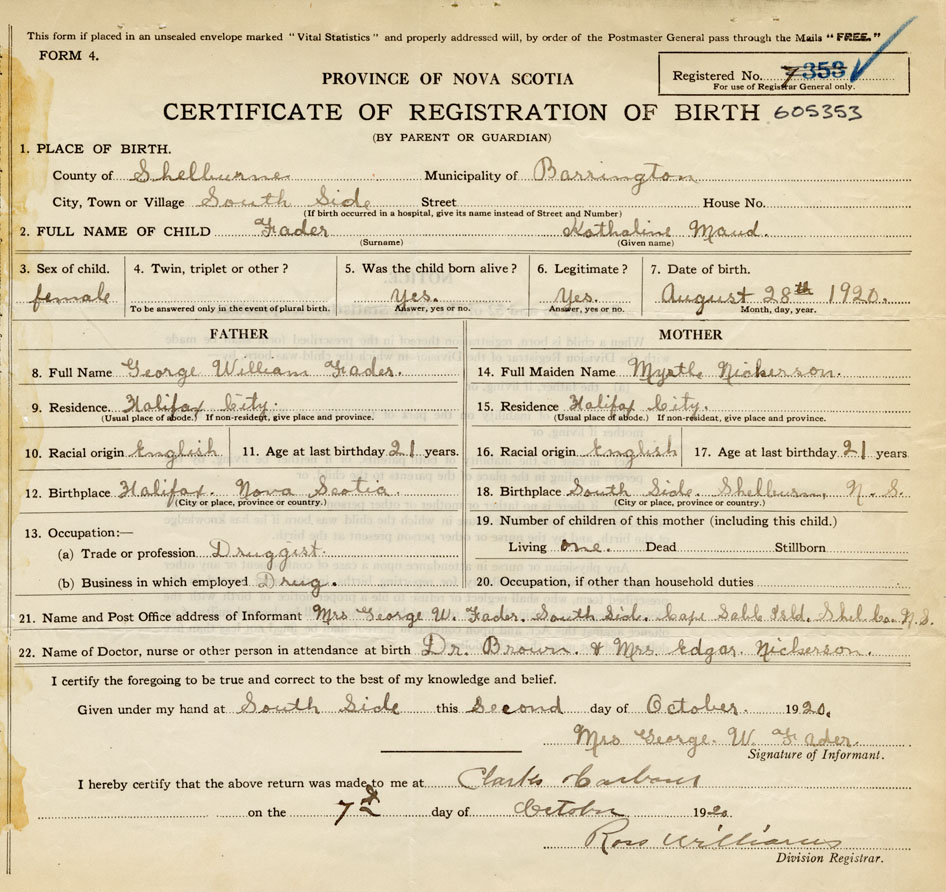 This form if placed in an unsealed envelope marked "Vital Statistics" and properly addressed will, by order of the Postmaster General pass through the Mails "FREE."
FORM 4.
Registered No. 7353
For use of Registrar General only.
PROVINCE OF NOVA SCOTIA
CERTIFICATE OF REGISTRATION OF BIRTH 605353
(BY PARENT OR GUARDIAN)
1. PLACE OF BIRTH.
County of Shelburne Municipality of Barrington
City, Town or Village South Side Street House No.
(If birth occurred in a hospital, give its name instead of Street and Number)
2. FULL NAME OF CHILD Fader Kathaline Maud.
(Surname) (Given name)
3. Sex of child. 4. Twin, triplet or other? 5. Was the child born alive? 6. Legitimate? 7. Date of birth.
female Yes. Yes. August 28th 1920.
To be answered only in the event of plural birth. Answer, yes or no. Answer, yes or no. Month, day, year.
FATHER MOTHER
8. Full Name George William Fader. 14. Full Maiden Name Myrtle Nickerson.
9. Residence. Halifax City. 15. Residence Halifax City.
(Usual place of abode.) If non-resident, give place and province. (Usual place of abode.) If non-resident, give place and province.
10. Racial origin English 11. Age at last birthday 21 years. 16. Racial origin English 17. Age at last birthday 21 years
12. Birthplace Halifax. Nova Scotia. 18. Birthplace South Side. Shelburn, N.S.
(City or place, province or country.) (City or place, province or country.)
13. Occupation:— 19. Number of children of this mother (including this child.)
(a) Trade or profession Druggist. Living one. Dead Stillborn
(b) Business in which employed Drug. 20. Occupation, if other than household duties
21. Name and Post Office address of Informant Mrs George W. Fader. South Sid. Cape Sabl Isld. Shel. Co. N.S.
22. Name of Doctor, nurse or other person in attendance at birth Dr. Brown. & Mrs Edgar. Nickerson.
I certify the foregoing to be true and correct to the best of my knowledge and belief.
Given under my hand at South Side this Second day of October. 1920.
Mrs George. W. Fader.
Signature of Informant.
I hereby certify that the above return was made to me at Clarks Harbour
on the 7th day of October 1920.
Ross Williams
Division Registrar.